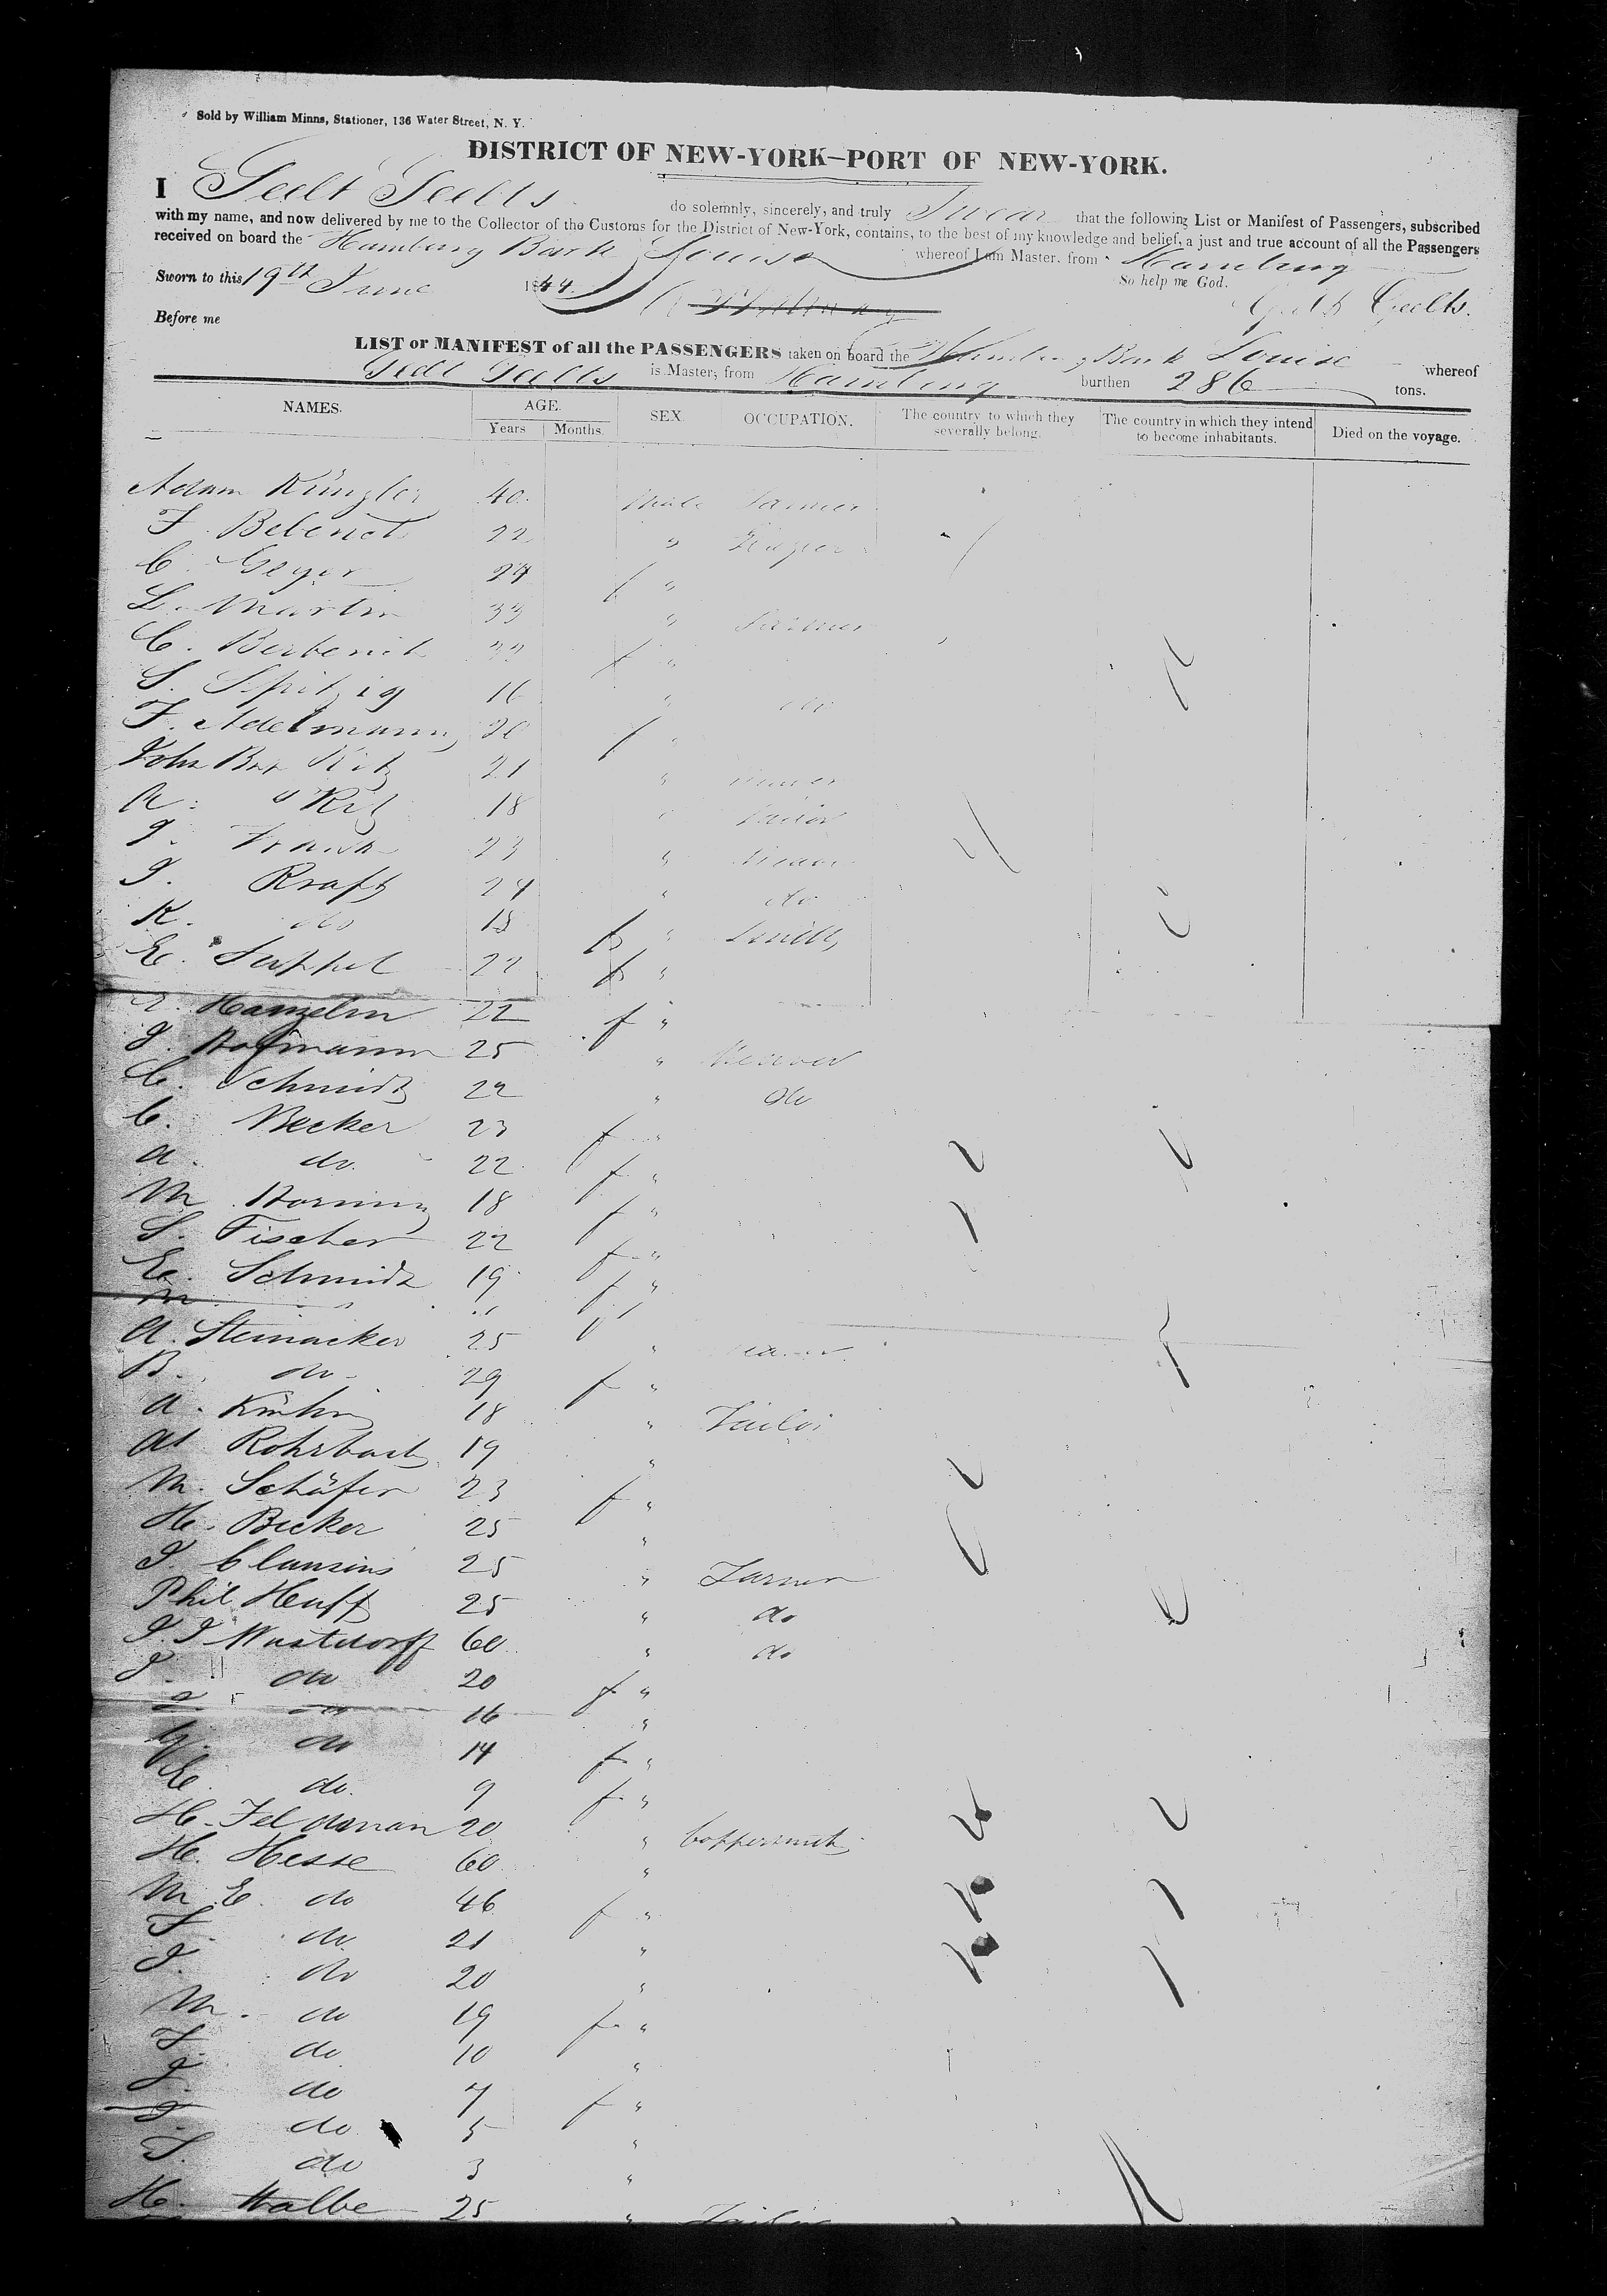 Sold by William Minns, Stationer, 136 Water Street, N. Y.
DISTRICT OF NEW-YORK—PORT OF NEW-YORK.
I Geelt Geelts do solemnly, sincerely, and truly Swear that the following List or Manifest of Passengers, subscribed
with my name, and now delivered by me to the Collector of the Customs for the District of New-York, contains, to the best of my knowledge and belief, a just and true account of all the Passengers
received on board the Hamburg Bark Louise whereof I am Master, from Hamburg
Sworn to this 19th June 1844. So help me God.
Geelt Geelts.
Before me
LIST or MANIFEST of all the PASSENGERS taken on board the Hamburg Bark Louise whereof
Geelt Geelts is Master, from Hamburg burthen 286 tons.
NAMES. AGE. SEX. OCCUPATION. The country to which they severally belong. The country in which they intend to become inhabitants. Died on the voyage.
Years Months.
Adam Küngler 40. Male
F. 22 "
C. Geyer 24 f "
L. Martin 33 " Farmer
C. f "
S. Spitzig 16 " do
F. Adelmann 20 f "
John 21 "
A. 18 " Tailor
23 "
J. Kraft 24 " do
K. do 18 " Smith
E. 22 f "
Hanzelm 22 f "
J. Hofmann 25 " Weaver
C. Schmidt 22 " do
C. Becker 23 f "
A. do. 22 f "
M. Horning 18 f "
S. Fischer 22 f "
E. Schmidt 19 f "
M " " f "
A. Steinacker 25 "
B. do 29 f "
A. Kühn 18 " Tailor
Ad Rohrbach 19 "
M. Schäfer 23 f "
H. Becker 25 "
J. Clausins 25 " Farmer
Phil Heuff 25 " do
J. J Wustdorff 60 " do
J. do 20 f "
do 16 "
G. do 14 f "
E. do. 9 f "
H. Feldmann 20 " Coppersmith
H. Hesse 60 "
M. E. do 46 f "
F. do. 21 "
J. do 20 "
M. do 19 f "
F. do 10 "
J. do 7 f "
J. do 5 "
S. do 3 "
H. Walbe 25 " Tailor